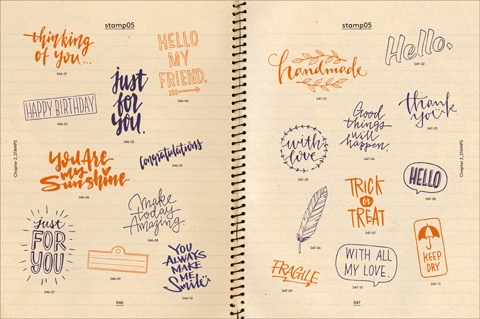 stamp05
thinking
of you...
046-01
HAPPY BIRTHDAY
046-02
just
for
you.
046-03
HELLO
MY
FRIEND.
046-04
congratulations
046-05
You Are
my
Sunshine
046-06
just
FOR
YOU
046-07
Make
today
Amazing
046-08
046-09
YOU
ALWAYS
MAKE
ME
Smile!
046-10
Chapter 2_STAMPS
046
stamp05
handmade
047-01
Hello,
047-02
thank
you
047-03
with
love
Good
things
will
happen.
HELLO
047-06
TRICK
or
TREAT
047-07
047-08
FRAGILE
047-09
WITH ALL
MY LOVE.
047-10
KEEP
DRY
047-11
Chapter 2_STAMPS
047